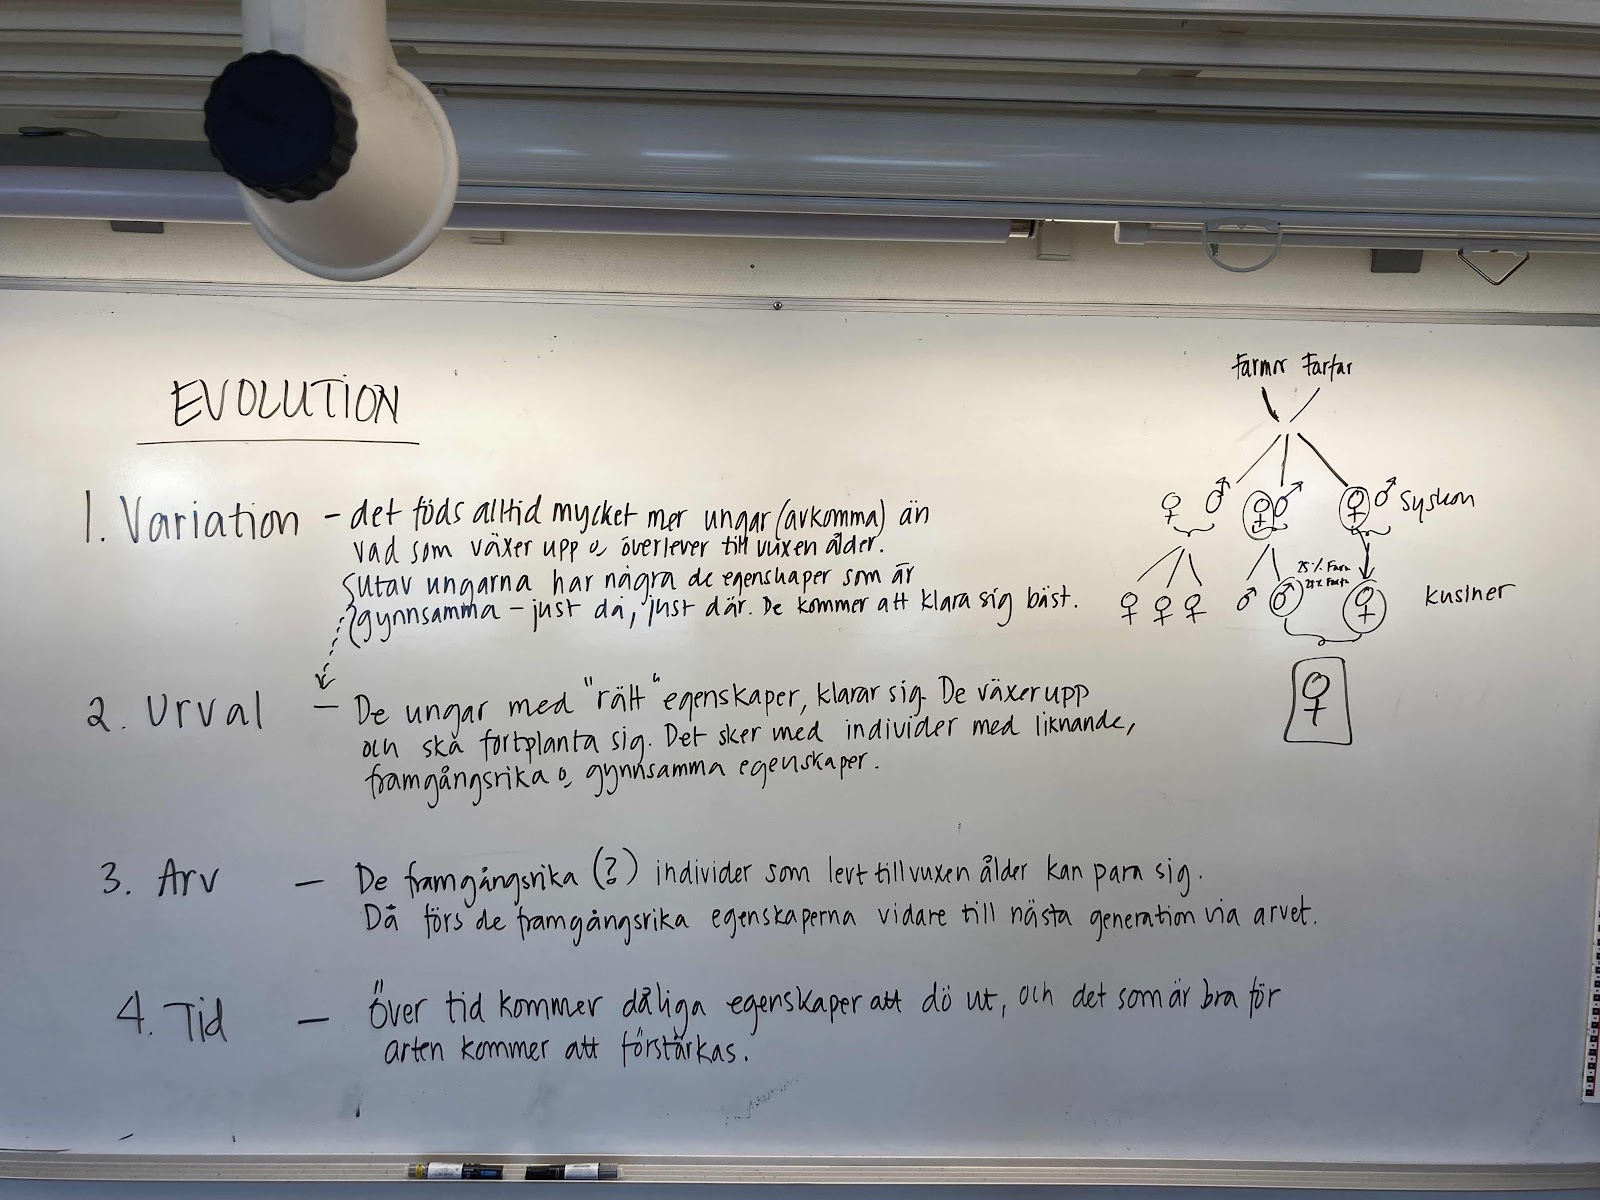 EVOLUTION
1. Variation - det föds alltid mycket mer ungar (avkomma) än
vad som växer upp o, överlever till vuxen ålder.
Sutav ungarna har några de egenskaper som är
gynnsamma - just då, just där. De kommer att klara sig bäst.
2. Urval - De ungar med "rätt" egenskaper, klarar sig. De växer upp
och ska fortplanta sig. Det sker med individer med liknande,
framgångsrika o, gynnsamma egenskaper.
3. Arv - De framgångsrika (?) individer som levt till vuxen ålder kan para sig.
Då förs de framgångsrika egenskaperna vidare till nästa generation via arvet.
4. Tid - Över tid kommer dåliga egenskaper att dö ut, och det som är bra för
arten kommer att förstärkas.
Farmor Farfar
♀ ♂ ♀ ♂ ♀ ♂ Syskon
25%
25%
♀ ♀ ♀ ♂ ♂ ♀ kusiner
♀